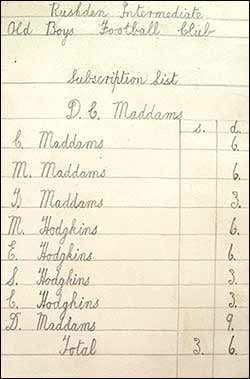 Rushden Intermediate
Old Boys Football Club
Subscription List
D. C. Maddams
s. d.
C. Maddams 6.
M. Maddams 6.
Maddams 3.
M. Hodgkins 6.
E. Hodgkins 6.
S. Hodgkins 3.
C. Hodgkins 3.
D. Maddams 9.
Total 3. 6.